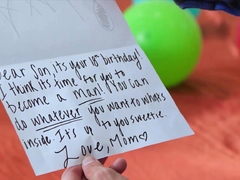 Dear Son, its your 18th birthday!
I think its time for you to
become a man! You can
do whatever you want to whats
inside It's up to you sweetie
Love, Mom♡